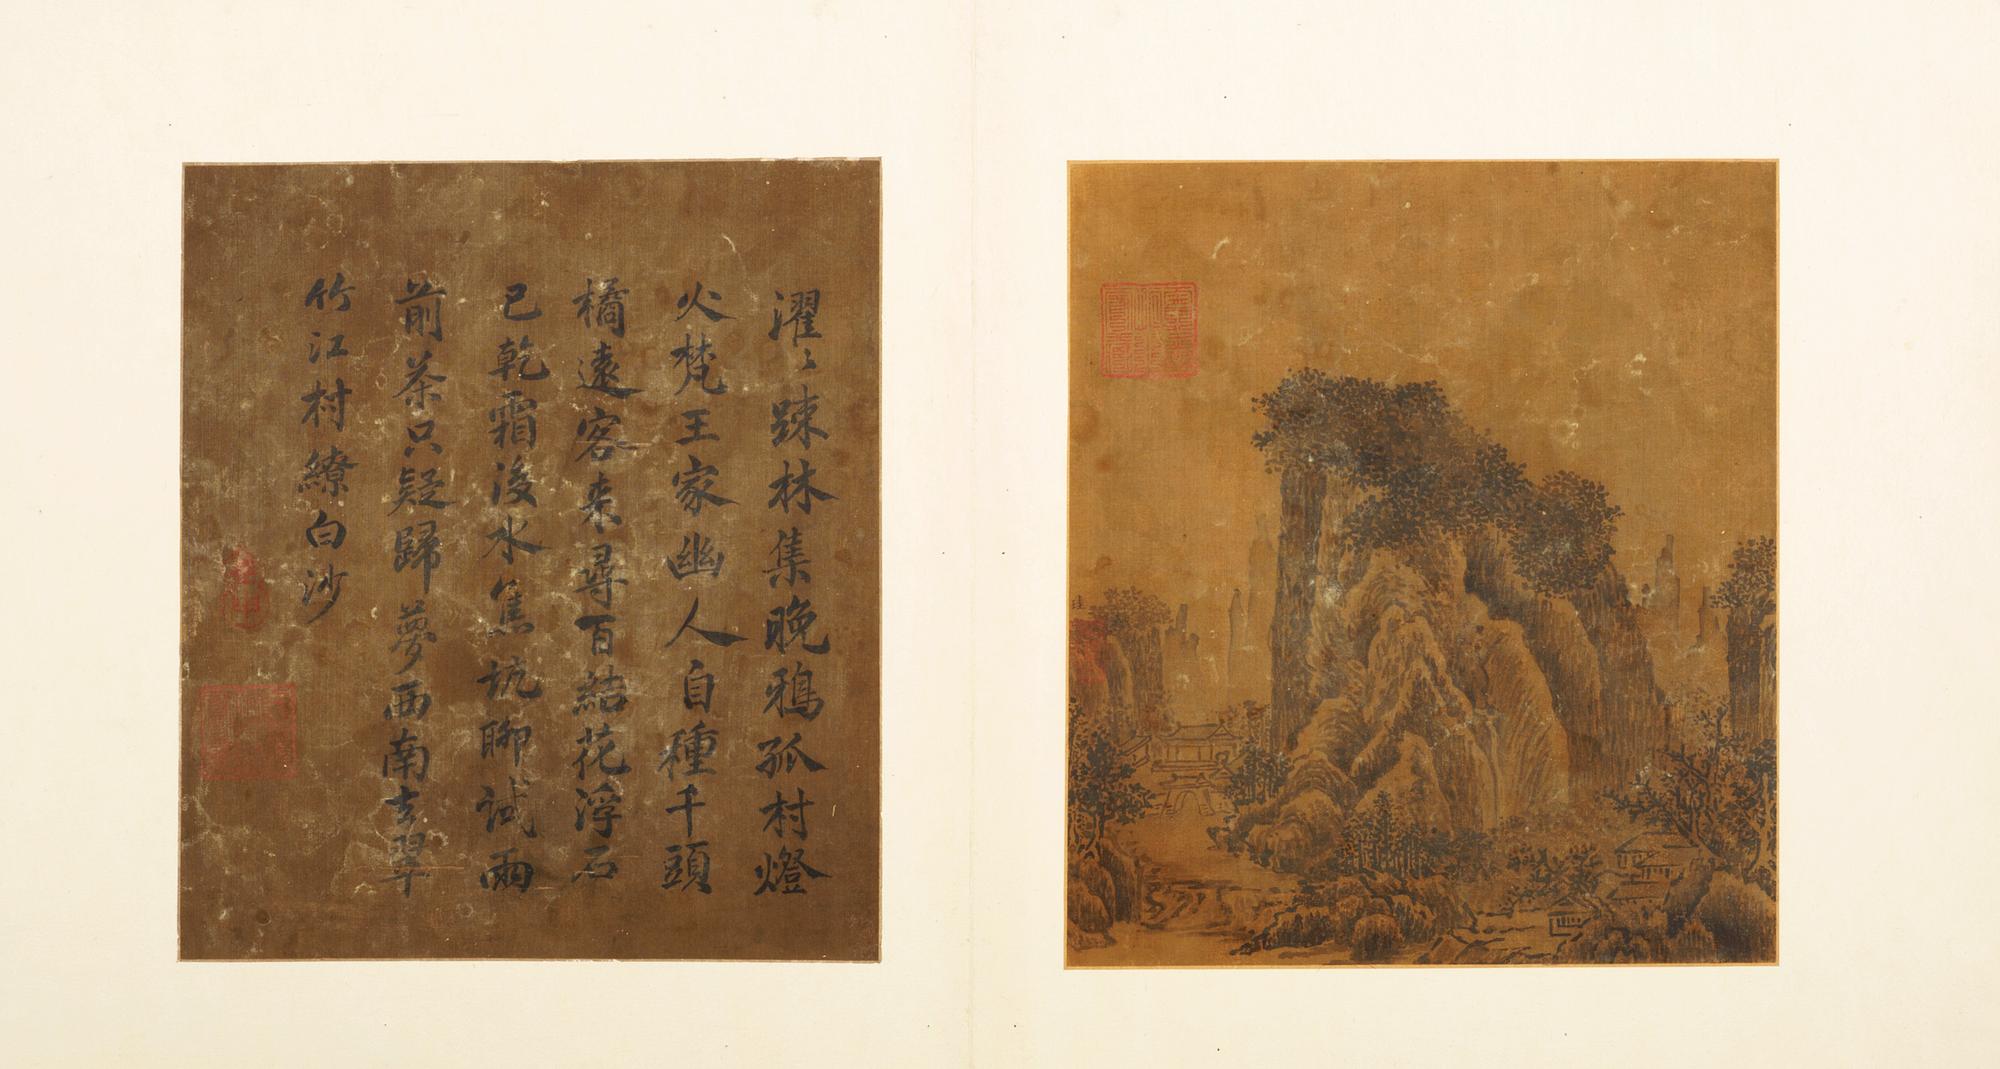 濯〻踈林集晚鴉孤村燈
火梵王家幽人自種千頭
橘遠客来尋百結花浮石
已乾霜後水焦坑聊試雨
前茶只疑歸夢西南去翠
竹江村繚白沙